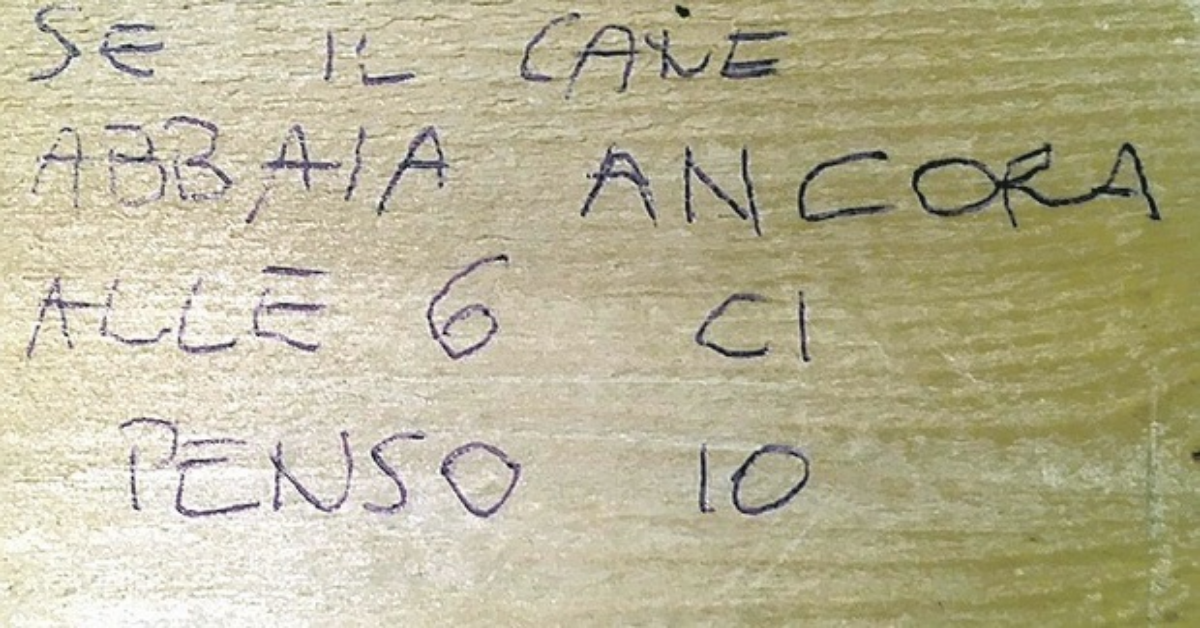 SE IL CANE
ABBAIA ANCORA
ALLE 6 CI
PENSO IO